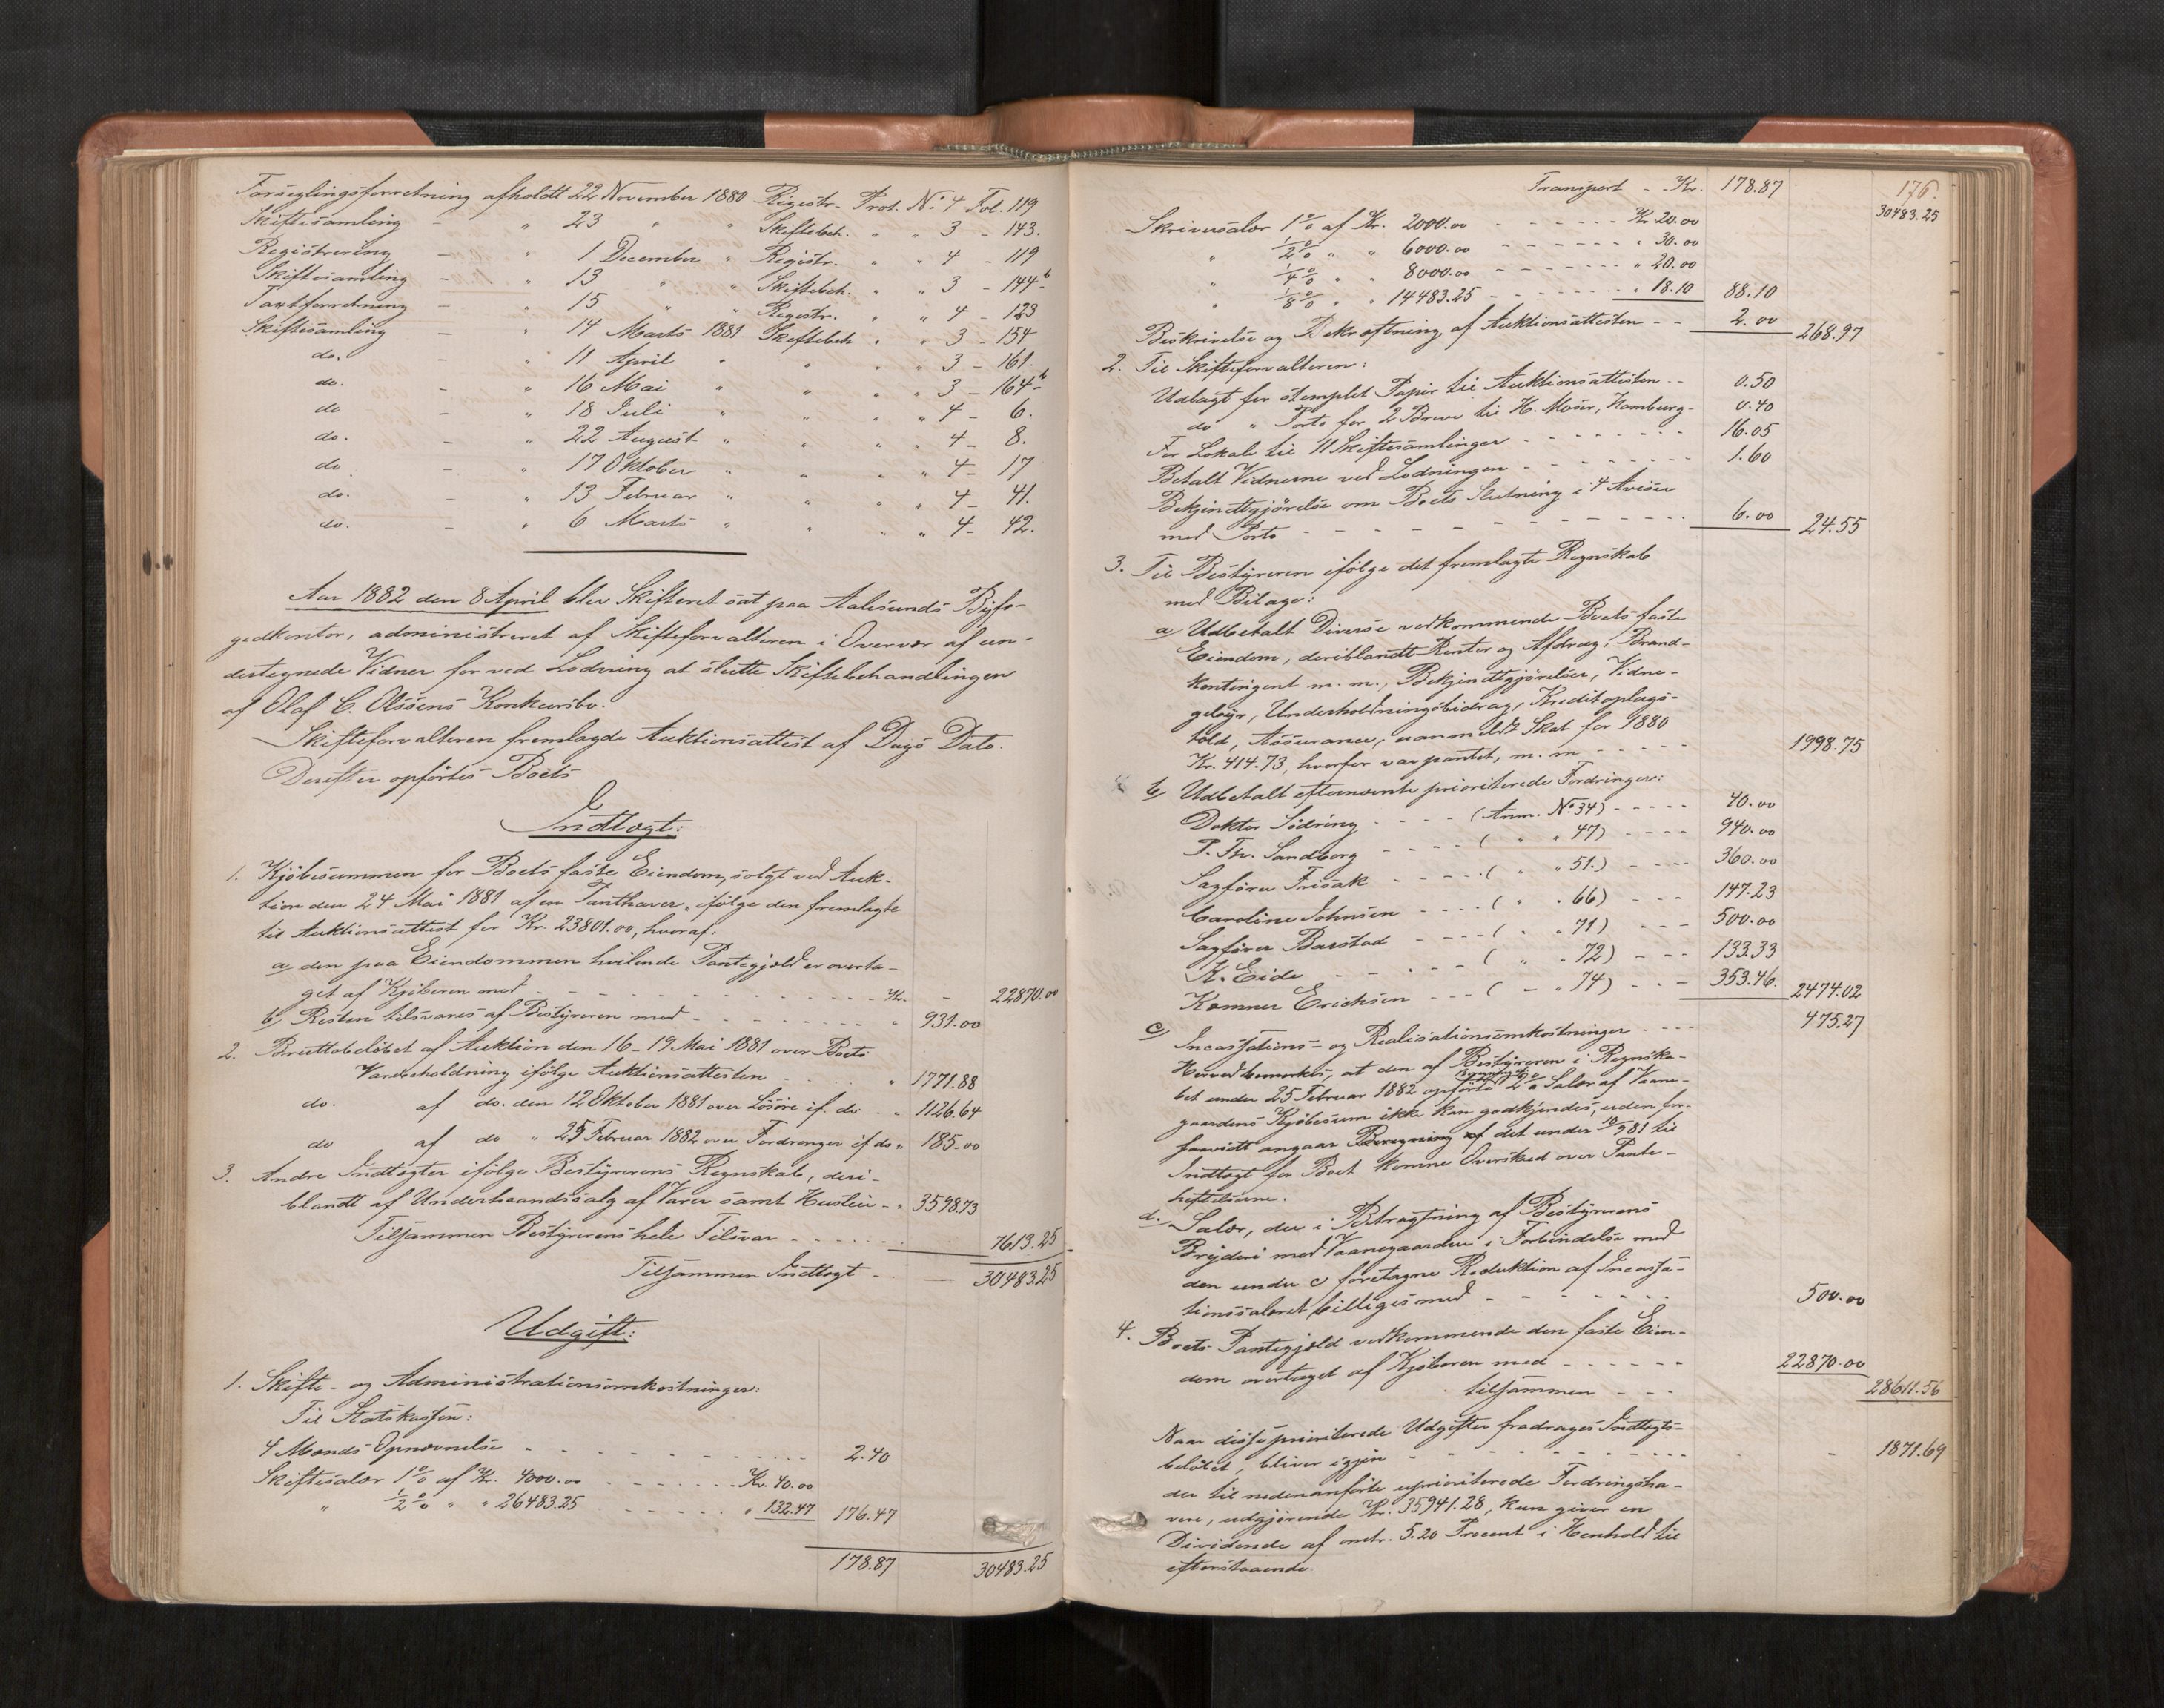 Forseglingsforretning afholdt 22 November 1880 Registr. Prot. No. 4 Fol. 119
Skiftesamling - " 23 " " Skiftebeh. " " 3 - 143.
Registrering - " 1 December " Registr. " " 4 - 119
Skiftesamling - " 13 " " Skiftebeh. " " 3 - 144b
Taxtforretning - " 15 " " Registr. " " 4 - 123
Skiftesamling - " 14 Marts 1881 Skiftebeh " " 3 - 154
do. - " 11 April " " " " 3 - 161.
do. - " 16 Mai " " " " 3 - 164b
do - " 18 Juli " " " " 4 - 6.
do. - " 22 August " " " " 4 - 8.
do - " 17 Oktober " " " " 4 - 17
do. - " 13 Februar " " " " 4 - 41.
do. - " 6 Marts " " " " 4 - 42.
Aar 1882 den 8 April blev Skifteret sat paa Aalesunds Byfo-
gedkontor, administreret af Skifteforvalteren i Overvær af un-
dertegnede Vidner for ved Lodning at slutte Skiftebehandlingen
af Olaf C. Olssens Konkursbo.
Skifteforvalteren fremlagde Auktionsattest af Dags Dato.
Derefter opførtes Boets
Indtægt:
1. Kjøbesummen for Boets faste Eiendom, solgt ved Auk-
tion den 24 Mai 1881 af en Panthaver, ifølge den fremlagte
til Auktionsattest for Kr. 23801.00, hvoraf:
a, den paa Eiendommen heilende Pantegjæld er overta-
get af Kjøberen med - - - Kr. - 22870.00
b, Resten tilsvares af Bestyreren med - - - " 931.00
2. Bruttobeløbet af Auktion den 16-19 Mai 1881 over Boets
Varebeholdning ifølge Auktionsattesten - - " 1771.88
do. af do. den 12 Oktober 1881 over Løsøre if. do. - " 1126.64
do af do " 25 Februar 1882 over Fordringer if do " 185.00
3. Andre Indtægter ifølge Bestyrerens Regnskab, deri-
blandt af Underhaandssalg af Varer samt Husleie - " 3598.73
Tilsammen Bestyrerens hele Tilsvar - - - 7613.25
Tilsammen Indtægt - - 30483.25
Udgift:
1. Skifte- og Administrationsomkostninger:
Til Statskassen:
4 Mænds Opnævnelse - - - 2.40
Skiftesalær 1% af Kr. 4000.00 - - - Kr. 40.00
" 1/2 % " " 26483.25 - - - " 132.47 176.47
178.87 30483.25
176.
Transport - Kr. 178.87 30483.25
Skriversalær 1% af Kr. 2000.00 - - - Kr 20.00
" 1/2 % " " 6000.00 - - - " 30.00
" 1/4 % " " 8000.00 - - - " 20.00
" 1/8 % " " 14483.25 - - - " 18.10 88.10
Beskrivelse og Bekræftning af Auktionsattesten - - 2.00 268.97
2. Til Skifteforvalteren:
Udlagt for stemplet Papir til Auktionsattesten - - 0.50
do " Porto for 2 Breve til H. Moser, Hamburg - 0.40
For Lokale til 11 Skiftesamlinger - - - 16.05
Betalt Vidnerne ved Lodningen - - - 1.60
Bekjendtgjørelse om Boets Slutning i 4 Aviser
med Porto - - - 6.00 24.55
3. Til Bestyreren ifølge det fremlagte Regnskab
med Bilage:
a, Udbetalt Diverse vedkommende Boets faste
Eiendom, deriblandt Renter og Afdrag, Brand-
kontingent m. m., Bekjendtgjørelser, Vidne-
gebyr, Underholdningsbidrag, Kreditoplags-
told, Assurance, uanmeldt Skat for 1880
Kr. 414.73, hvorfor var pantet, m. m - - - 1998.75
b, Udbetalt efternævnte prioriterede Fordringer:
Doktor Södring - - - (Anm. No. 34) - - - 40.00
P. Th. Sandborg - - - ( " " 47) - - - 940.00
Sagfører Frisak - - - ( " " 51.) - - - 360.00
Caroline Johnsen - - - ( " " 66) - - - 147.23
Sagfører Barstad - - - ( " " 71) - - - 500.00
K. Eide - - - ( " " 72) - - - 133.33
Kæmner Erichsen - - - ( - " 74) - - - 353.46. 2474.02
c, Incassations- og Realisationsomkostninger - - - 475.27
Herved bemærkes, at den af Bestyreren i Regnska-
bet under 25 Februar 1882 opførte 2% Salær af Vaane-
gaardens Kjøbesum ikke kan godkjendes, uden for-
saavidt angaar Beregning af det under 10/9 81 til
Indtægt for Boet komne Overskud over Pante-
heftelserne.
d. Salær, der i Betragtning af Bestyrerens
Bryderi med Vaanegaarden i Forbindelse med
den under c foretagne Reduktion af Incassa-
tionssalæret, billiges med - - - 500.00
4. Boets Pantegjæld vedkommende den faste Eien-
dom overtaget af Kjøberen med - - - 22870.00
tilsammen - - - 28611.56
Naar disse prioriterede Udgifter fradrages Indtægts-
beløbet, bliver igjen - - - 1871.69
der til nedenanførte uprioriterede Fordringsha-
vere, udgjørende Kr. 35941.28, kun giver en
Dividende af omtr. 5.20 Procent i Henhold til
efterstaaende